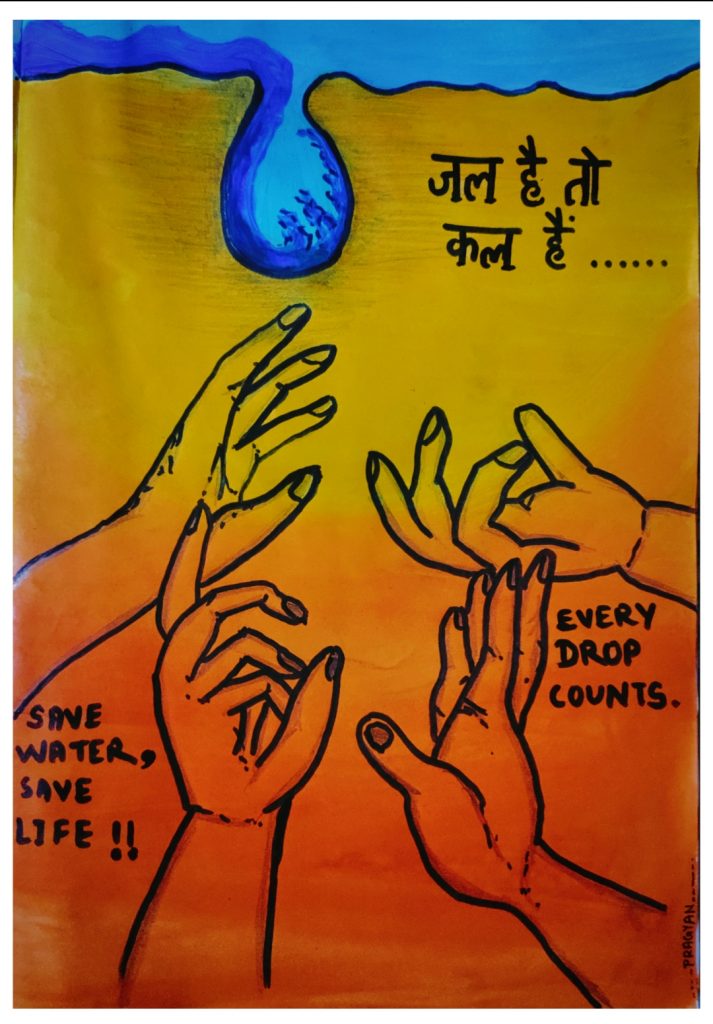 जल है तो
कल हैं ......
EVERY
DROP
COUNTS.
SAVE
WATER,
SAVE
LIFE !!
PRAGYAN